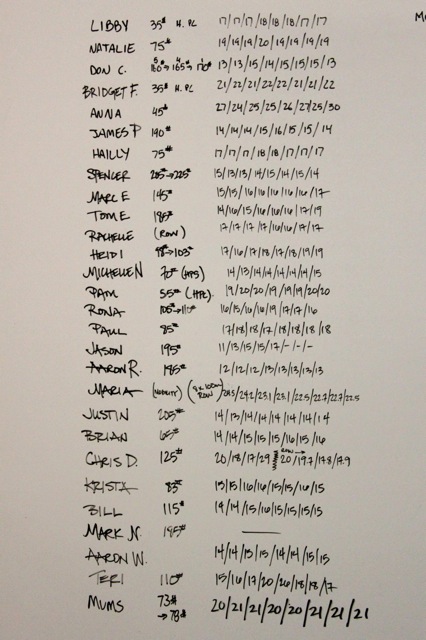 Mo
LIBBY 35# H. PC 17/17/17/18/18/18/17/17
NATALIE 75# 19/19/19/20/19/19/19/19
DON C. 13/13/15/14/15/15/15/13
BRIDGET F. 35# H. PC 21/22/21/22/22/21/21/22
ANNA 45# 27/24/25/25/26/27/25/30
JAMES P 190# 14/14/14/15/16/15/15/14
HAILLY 75# 17/17/17/18/18/17/17
SPENCER 205#→225# 15/13/13/14/15/14/15/14
MARC E 145# 15/15/16/16/16/16/16/17
TOM E 185# 14/16/15/16/16/16/17/19
RACHELLE (ROW) 17/17/17/17/16/16/17/17
HEIDI →103# 17/16/17/18/17/18/19/19
MICHELLE N 70# (HPS) 14/13/14/14/14/14/14/15
PAM 55# (HPC) 19/20/20/19/19/19/20/20
RONA 105#→110# 16/15/16/16/19/17/17/16
PAUL 85# 17/18/18/17/18/18/18/18
JASON 195# 11/13/15/15/17/-/-/-
AARON R. 185# 12/12/12/13/13/13/13/13
MARIA (MOBILITY) ROW) 24.5/24.2/23.1/23.1/22.5/22.7/22.7/22.5
JUSTIN 205# 14/13/14/14/14/14/14/14
BRIAN 65# 14/14/15/15/15/16/15/16
CHRIS D. 125# 20/18/17/29 ROW→ 20/19.7/17.8/17.9
KRISTA 83# 15/15/16/16/15/15/16/15
BILL 115# 14/14/15/16/15/15/15/15
MARK N. 195# —
AARON W. 14/14/15/15/14/14/15/15
TERI 110# 15/16/17/20/26/18/18/17
MUMS 73# 20/21/21/20/20/21/21/21
→78#